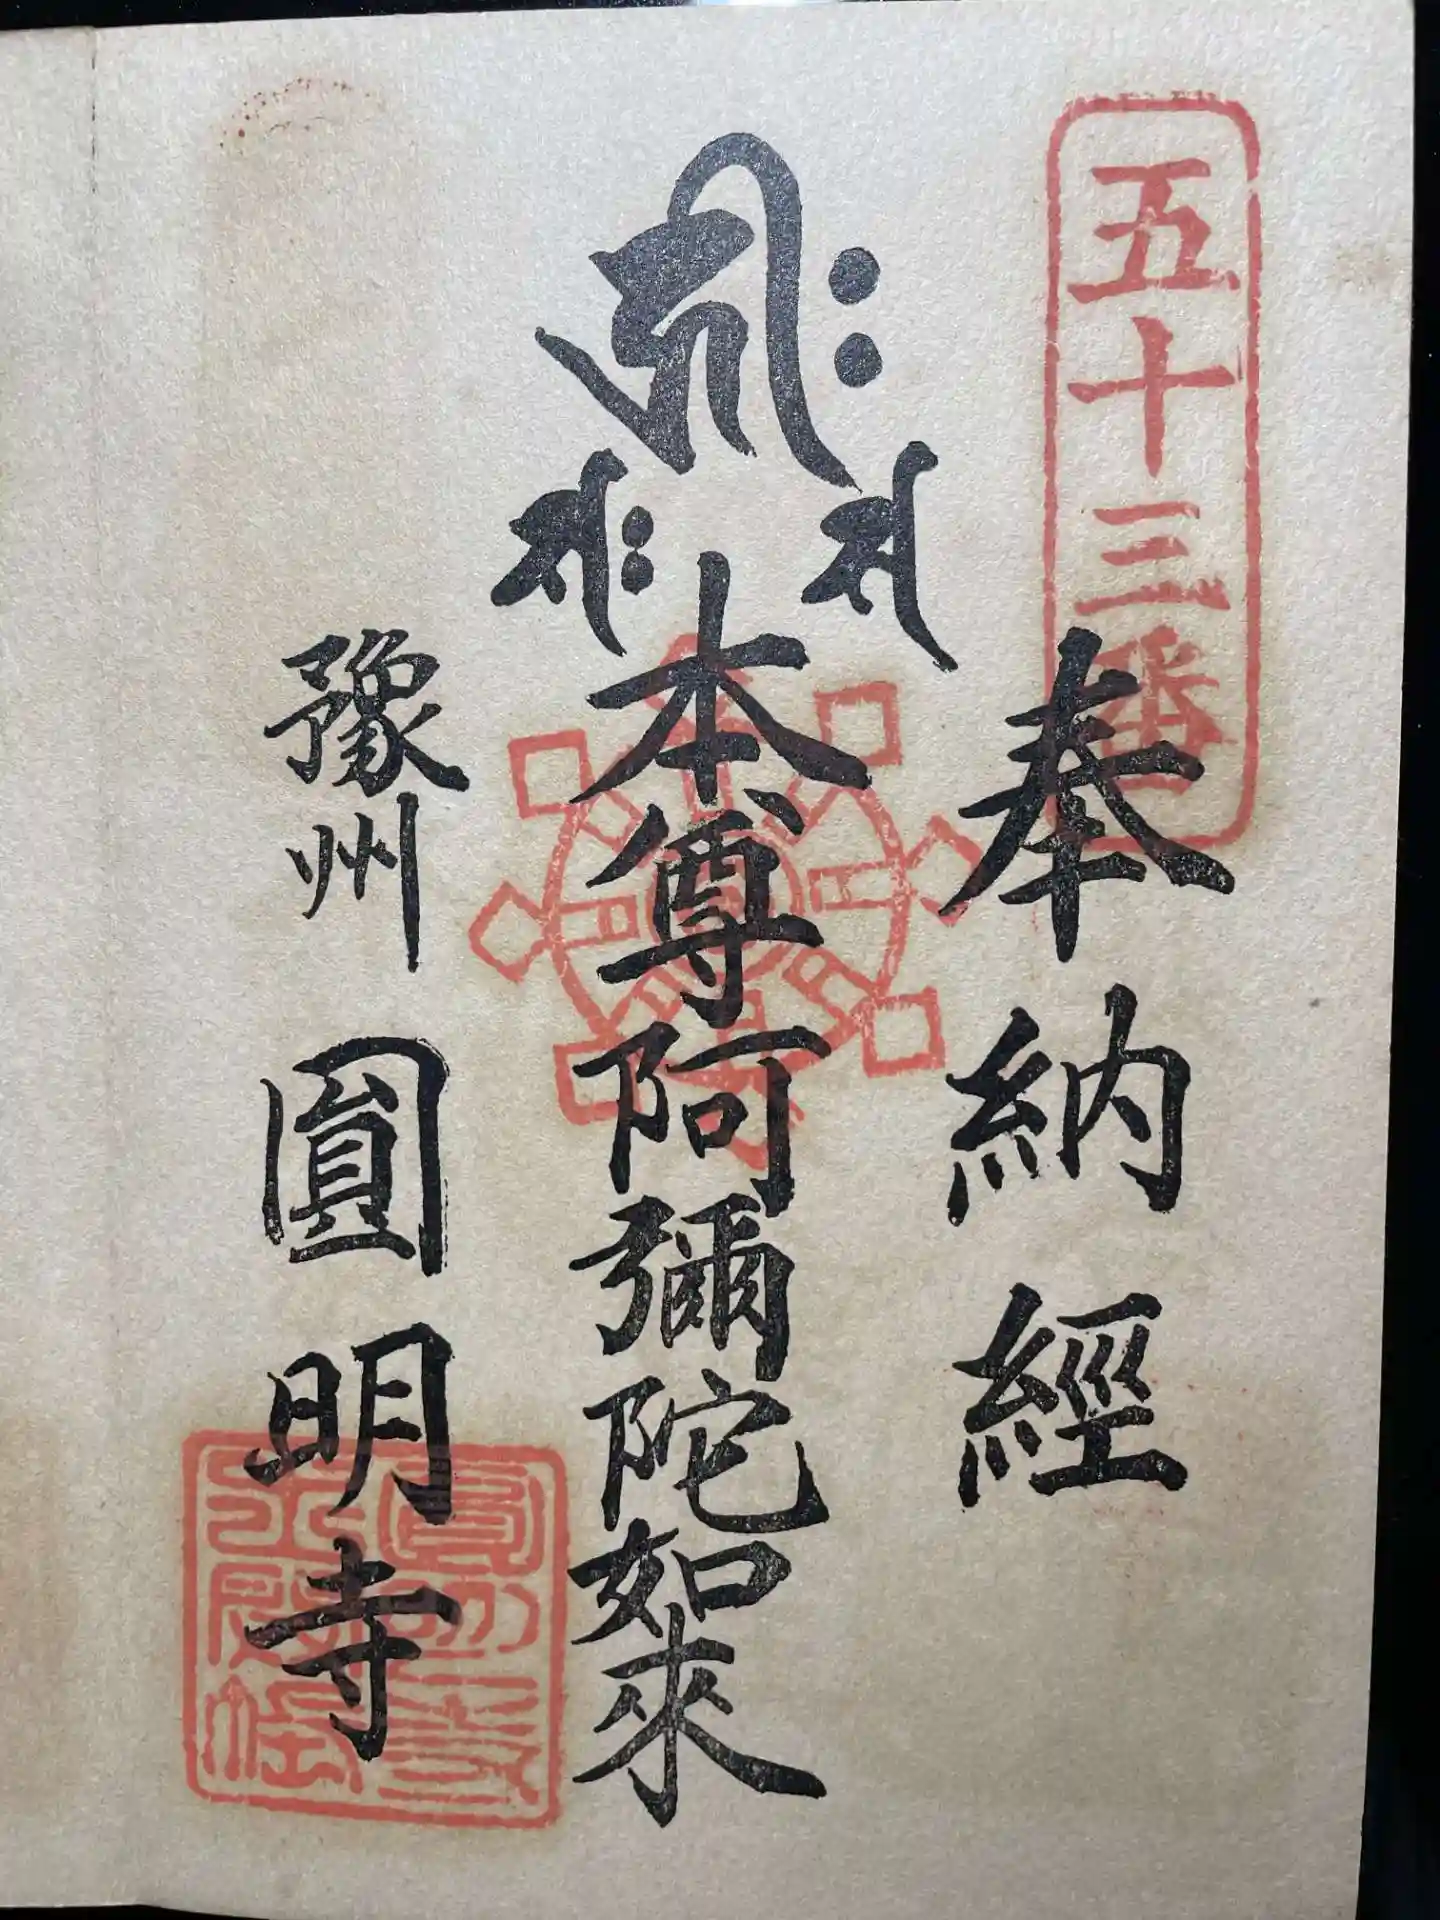 五十三番
奉納經
𑖮𑖿𑖨𑖱𑖾
𑖭
𑖭𑖾
本尊阿彌陀如來
豫州 圓明寺